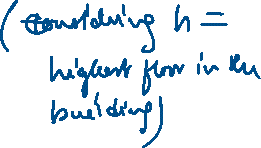 (considering h =
highest floor in the
building)